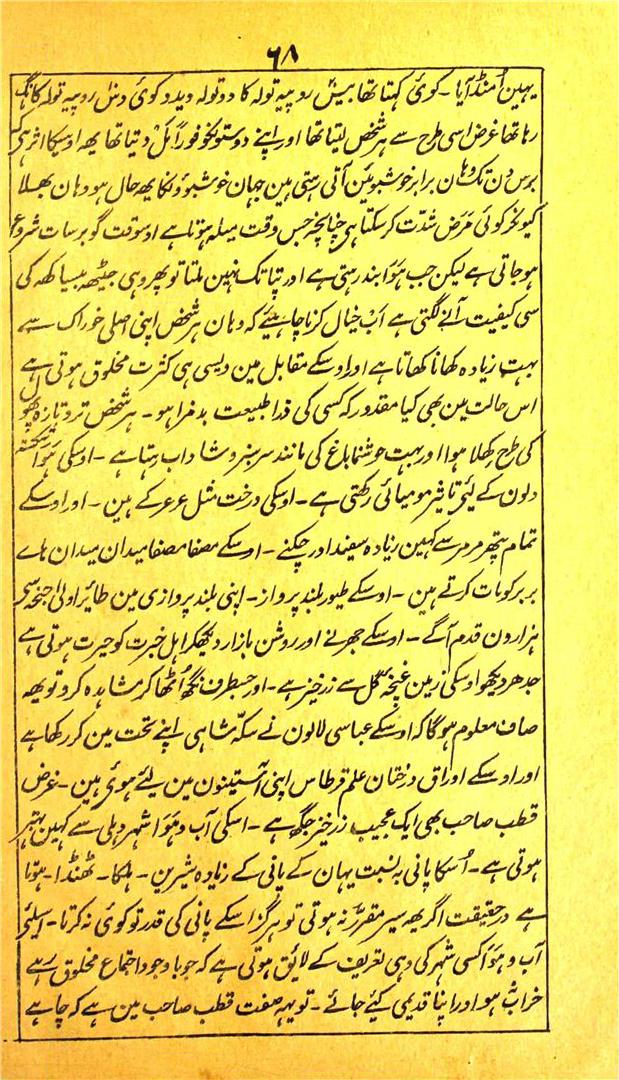 ٦٨
یہین اُمنڈ آیا ۔ کوئی کہتا تھا بیس روپیہ تولہ کا دو تولہ دیدو کوئی دس روپیہ تولہ کا مانگ
رہا تھا غرض اسی طرح سے ہر شخص لیتا تھا اور اپنے دوستونکو فوراً مل دیتا تھا یهہ اوسیکا اثر ہی کہ
برس دن تک وہان برابر خوشبوئین آتی رہتی ہین جہان خوشبوؤنکا یهہ حال ہو وہان بھلا
کیونکر کوئی مرض شدّت کر سکتا ہی چنانچہ جس وقت میلہ ہوتا ہے اوسوقت گو برسات شروع
ہو جاتی ہے لیکن جب ہَوا بند رہتی ہے اور پتا تک نہین ہلتا تو پھر وہی جیٹھہ بیساکھہ کی
سی کیفیت آنے لگتی ہے اَب خیال کرنا چاہیئے کہ وہان ہر شخص اپنی اصلی خوراک سے
بہت زیادہ کھانا کھاتا ہے اور اوسکے مقابل مین ویسی ہی کثرت مخلوق ہوتی ہے
اس حالت مین بھی کیا مقدور کہ کسی کی ذرا طبیعت بدمزا ہو ۔ ہر شخص تروتازہ پھول
کی طرح کھلا ہوا اور بہت خوشنما باغ کی مانند سرسبز و شاداب رہتا ہے ۔ اوسکی ہوا شکستہ
دلون کے لئی تاثیر مومیائی رکھتی ہے ۔ اوسکی درخت مثل عرعر کے ہین ۔ اور اوسکے
تمام پتھر مرمر سے کہین زیادہ سفید اور چکنے ۔ اوسکے مصفا مصفا میدان میدان ہاے
بربر کو مات کرتے ہین ۔ اوسکے طیور بلند پرواز ۔ اپنی بلند پروازی مین طائر اولیٰ اجنحہ سے
ہزارون قدم آگے ۔ اوسکے جھرنے اور روشن بازار دیکھکر اہل خبرت کو حیرت ہوتی ہے
جدھر دیکھو اوسکی زمین غنچہ گل سے زرخیز ہے ۔ اور جسطرف نگھہ اُٹھا کر مشاہدہ کرو تو یهہ
صاف معلوم ہوگا کہ اوسکے عباسی لالون نے سکّہ شاہی اپنے تحت مین کر رکھا ہے
اور اوسکے اوراق درختان علم قرطاس اپنی آستینون مین لئے ہوئی ہین ۔ غرض
قطب صاحب بھی ایک عجیب زرخیز جگہہ ہے ۔ اسکی آب و ہَوا شہر دہلی سے کہین بہتر
ہوتی ہے ۔ اُسکا پانی بہ نسبت یہان کے پانی کے زیادہ شیرین ۔ ہلکا ۔ ٹھنڈا ۔ ہوتا
ہے درحقیقت اگر یهہ سیر مقرّر نہ ہوتی تو ہرگز اسکے پانی کی قدر تو کوئی نہ کرتا ۔ اسلئی
آب و ہَوا کسی شہر کی وہی تعریف کے لایٔق ہوتی ہے کہ جو با وجود اجتماع مخلوق رہے
خراب ہو اور اپنا قدیمی کیئے جائے ۔ تو یہہ صفت قطب صاحب مین ہے کہ چاہے